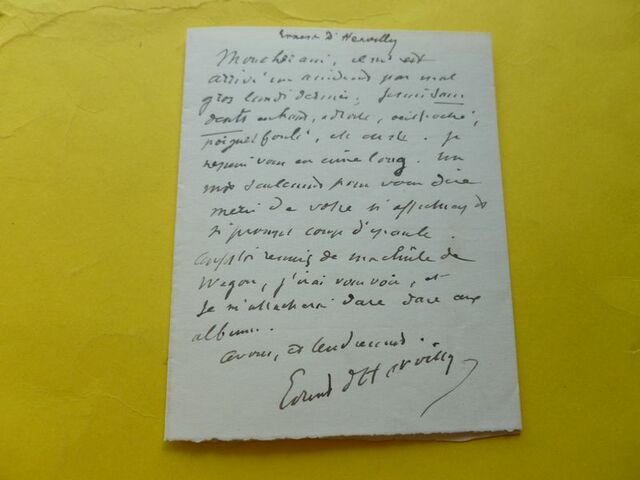 Ernest d'Hervilly
Mon cher ami, il m'est
arrivé un accident pas mal
gros lundi dernier, je suis sans
dents en haut, à droite, œil poché,
poignet foulé, et
vous en écrire long. un
mot seulement pour vous dire
merci de votre si affectueux et
si prompt coup d'épaule.
remis de ma chute de
Wagon, j'irai vous voir, et
je m'attacherai dare dare aux
albums.
à vous, et tendrement.
Ernest d'Hervilly